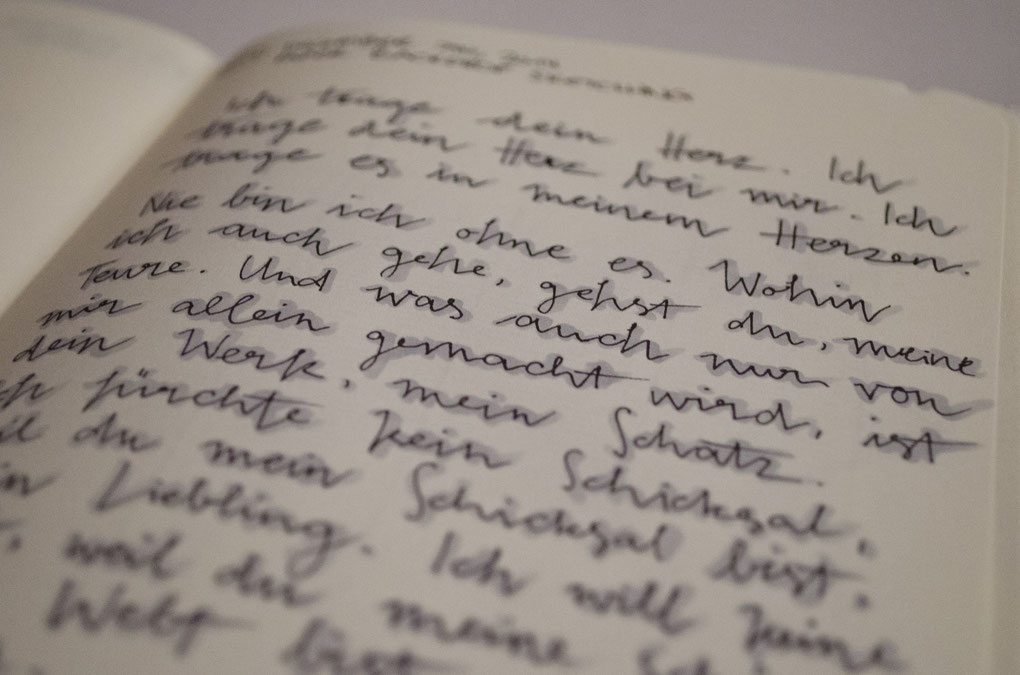 Ich trage dein Herz. Ich
trage dein Herz bei mir. Ich
trage es in meinem Herzen.
Nie bin ich ohne es. Wohin
ich auch gehe, gehst du, meine
Teure. Und was auch nur von
mir allein gemacht wird, ist
dein Werk, mein Schatz.
ch fürchte kein Schicksal,
il du mein Schicksal bist,
in Liebling. Ich will keine
, weil du meine
Welt bist